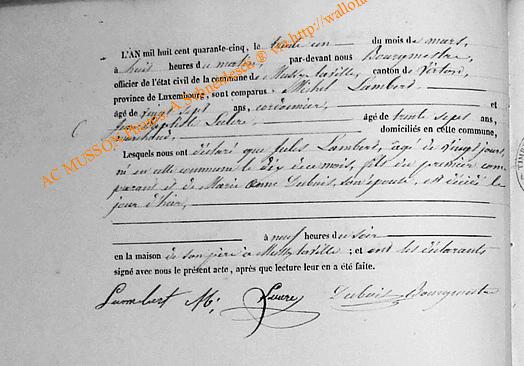 L'AN mil huit cent quarante-cinq, le trente un du mois de mars,
à huit heures du matin, par-devant nous Bourgmestre
officier de l'état civil de la commune de Mussy-la-ville, canton de Virton,
province de Luxembourg, sont comparus Michel Lambert,
âgé de vingt sept ans, cordonnier, et
Jean Baptiste âgé de trente sept ans,
domiciliés en cette commune,
Lesquels nous ont déclaré que Jules Lambert, agé de vingt jours
né en cette commune le dix de ce mois, fils du premier com-
parant et de Marie Anne Dubois, son épouse, est décédé le
jour d'hier,
à neuf heures du soir
en la maison de son père à Mussy-la-ville ; et ont les déclarants
signé avec nous le présent acte, après que lecture leur en a été faite.
Lambert M. Dubois Bourgmestre
AC MUSSON Photos A Schneidesch ® via http://wallon
TIMBRE